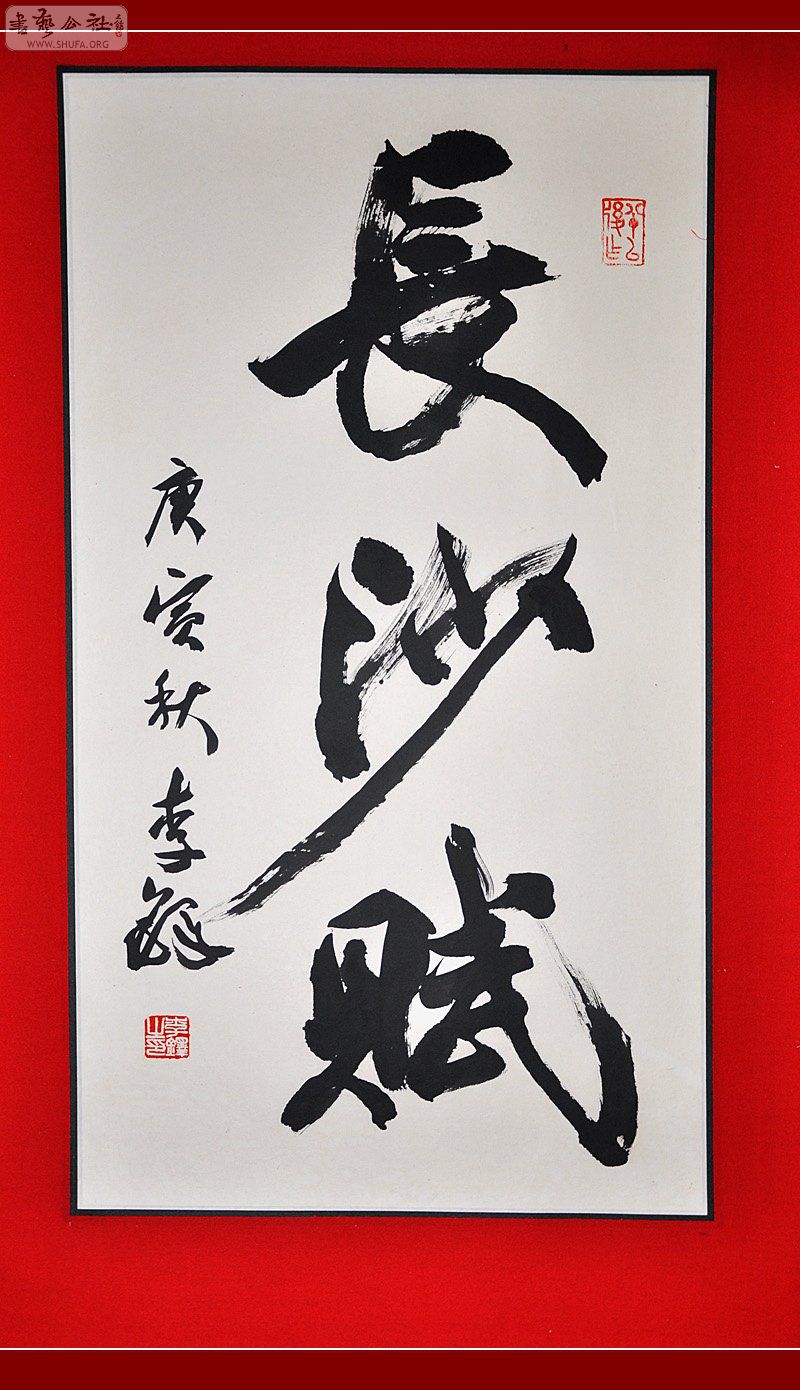 書藝公社
WWW.SHUFA.ORG
長沙賦
庚寅秋 李鐸
李鐸之印